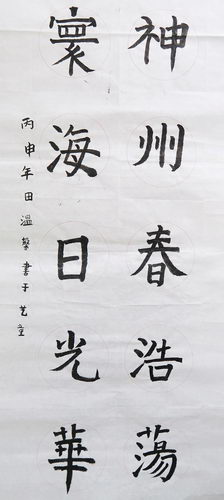 神州春浩蕩
寰海日光華
丙申年田溫黎書于艺立